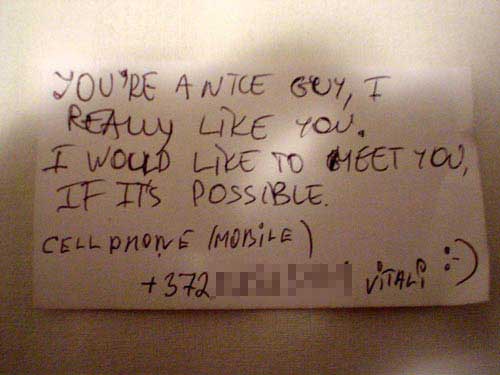 YOU'RE A NICE GUY, I
REALLY LIKE YOU.
I WOULD LIKE TO MEET YOU,
IF IT'S POSSIBLE.
CELLPHONE (MOBILE)
+372 VITALi :-)